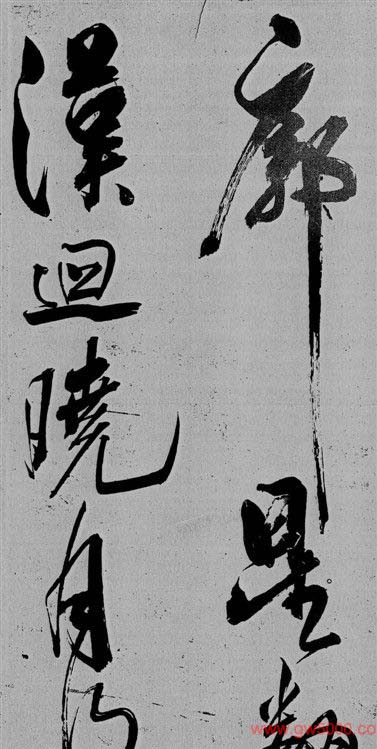 廓星
漢迴曉月
www.gw5000.com